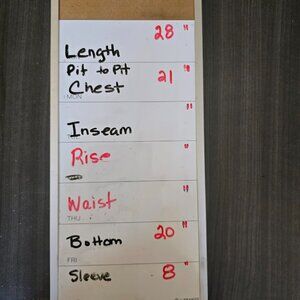 Length 28 "
Pit to Pit
Chest 21 "
MON
Inseam "
Rise "
Waist "
THU
Bottom 20 "
FRI
Sleeve 8 "